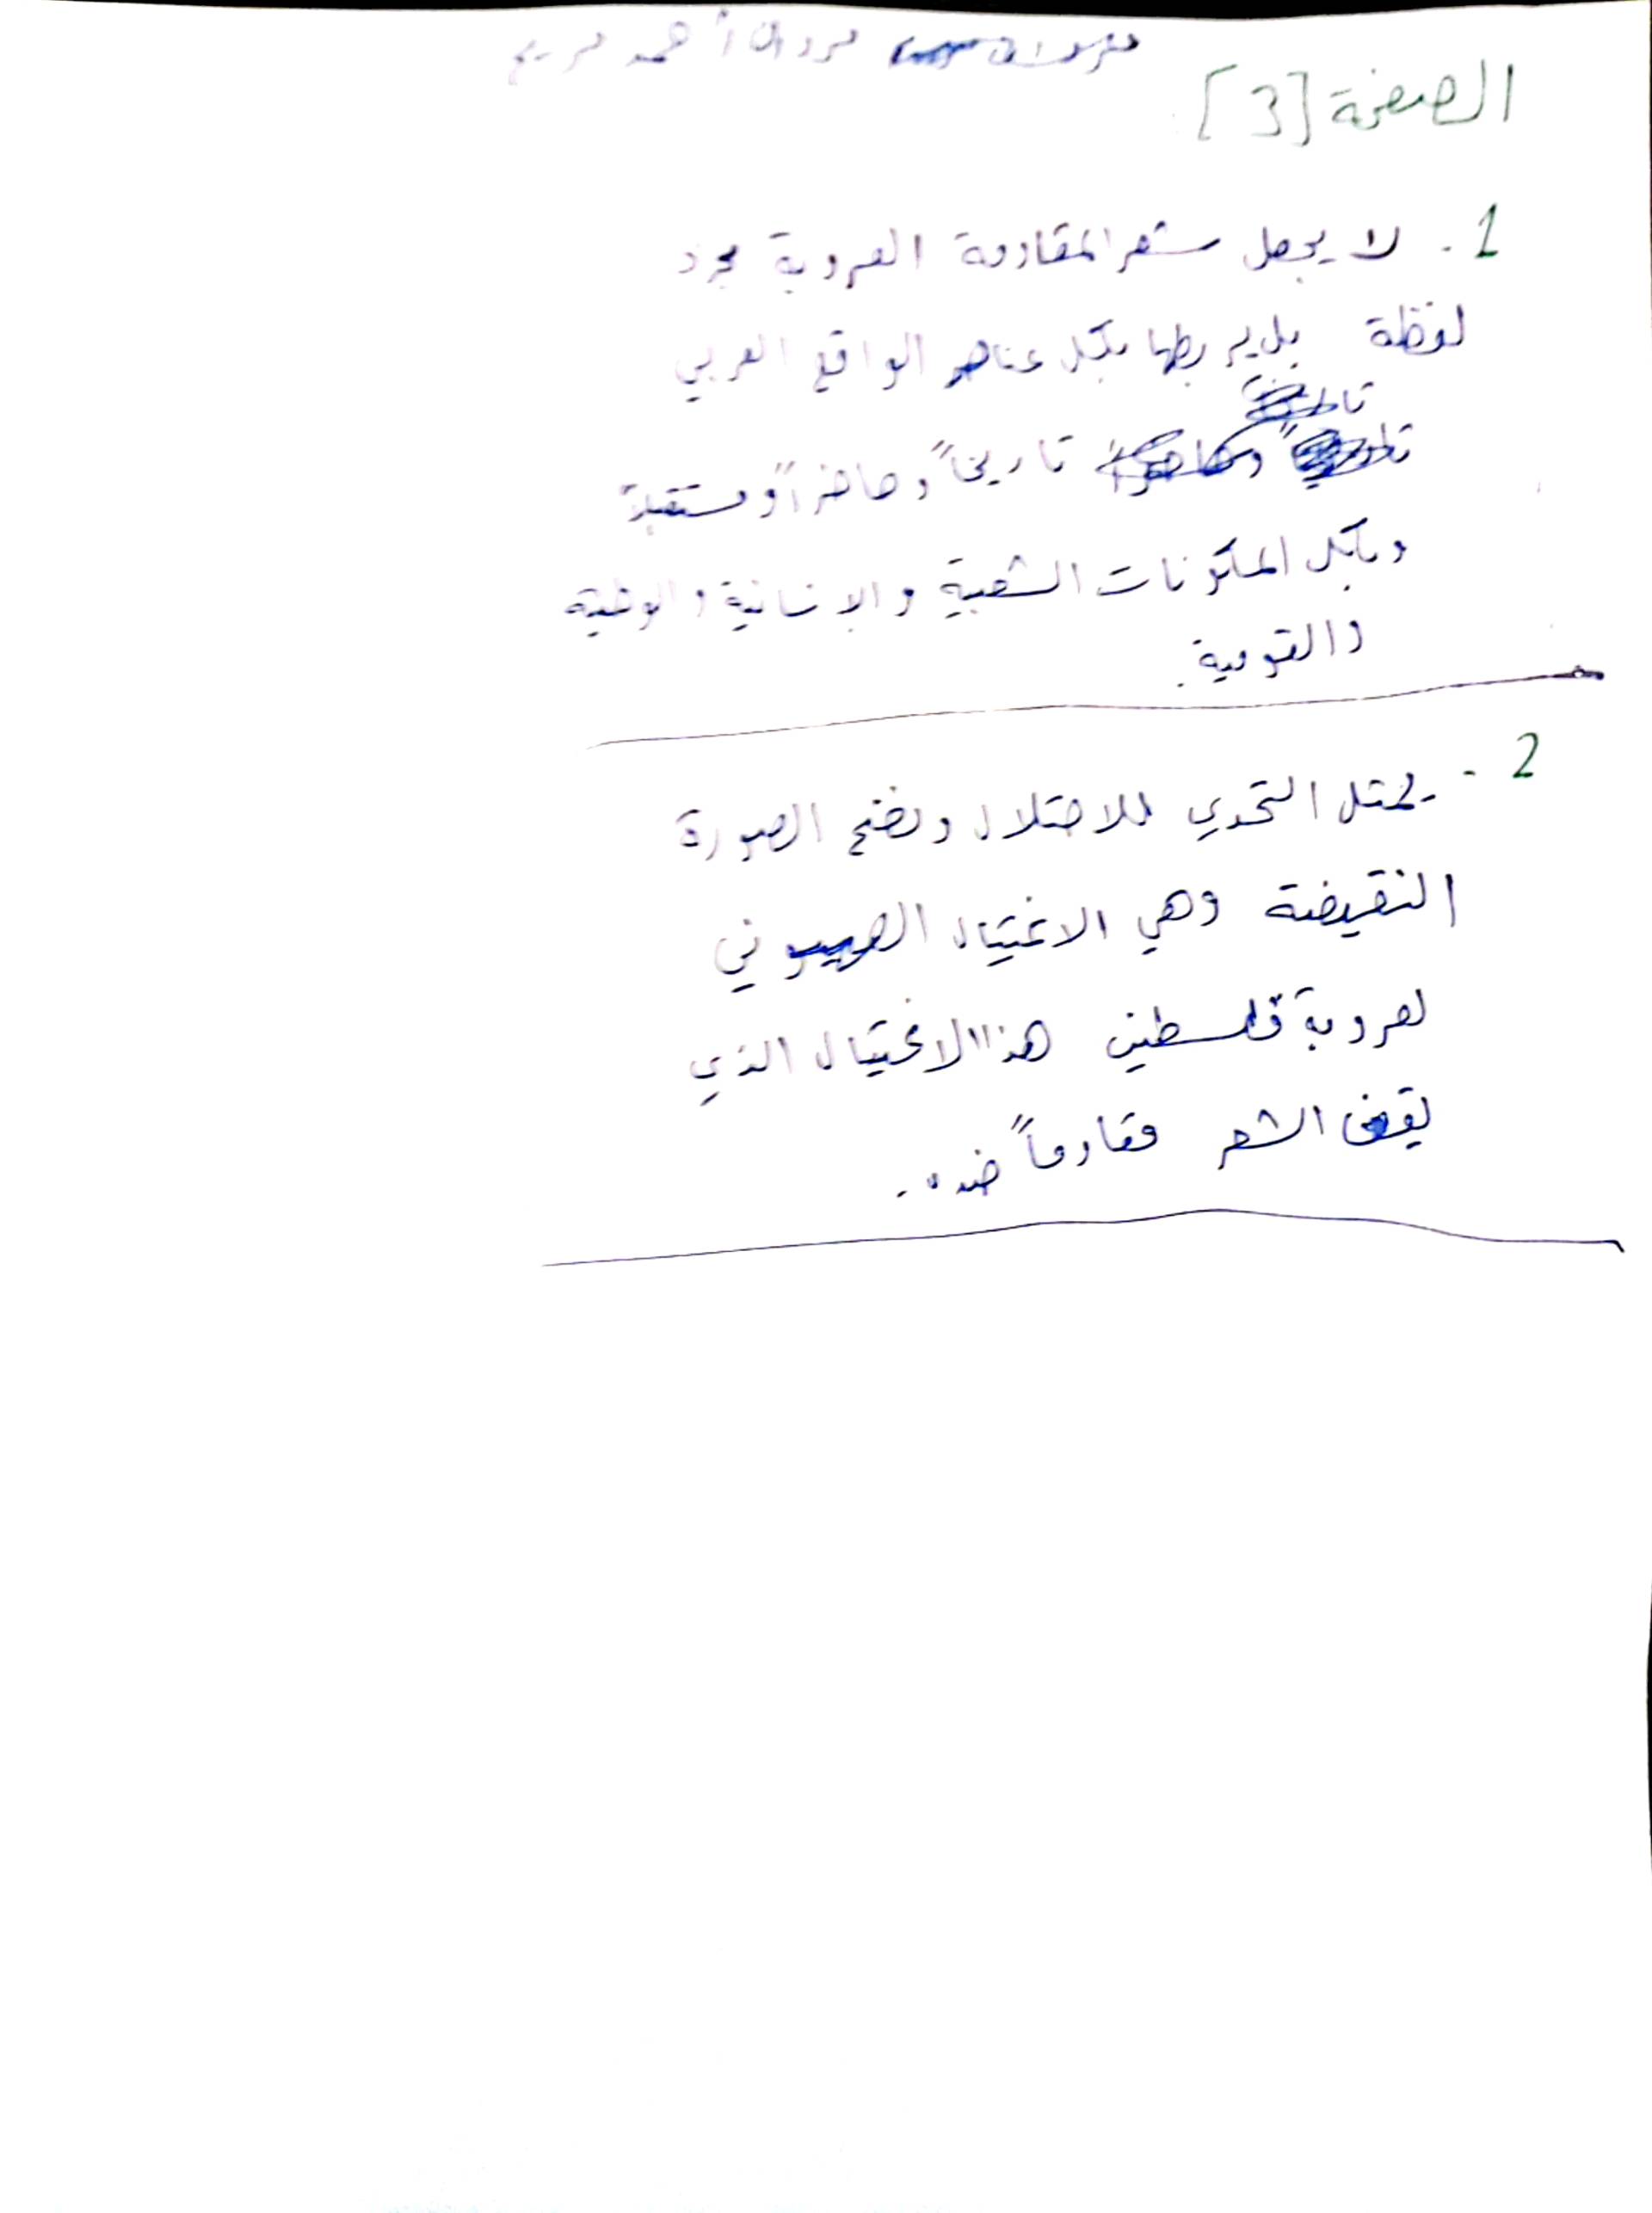 مروان أحمد مريم
الصفحة [3]
1. لا يجعل شعر المقاومة العروبة مجرد
لفظة بل يربطها بكل عناصر الواقع العربي
تاريخاً وحاضراً ومستقبلاً
وبكل المكونات الشعبية والإنسانية والوطنية
والقومية.
2 - يمثل التحدي للاحتلال وفضح الصورة
النقيضة وهي الاغتيال الصهيوني
لعروبة فلسطين هذا الاغتيال الذي
يقف الشعر مقاوماً ضده.